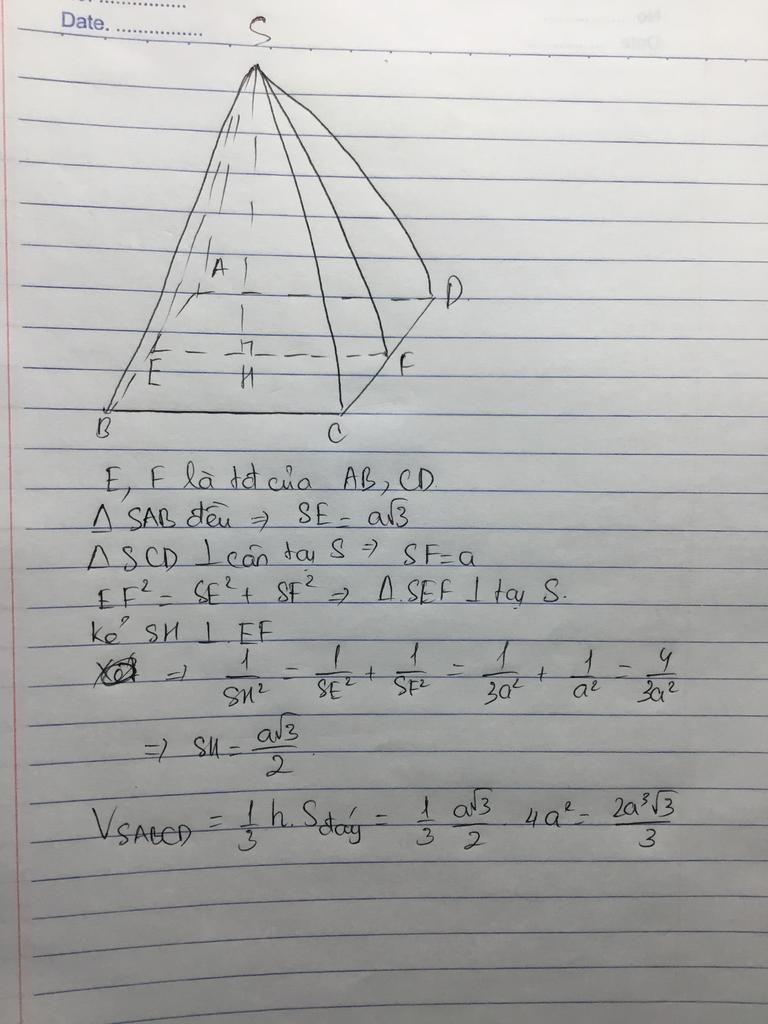 Date. ................
S
A
D
E
H
F
B
C
E, F là tđ của AB, CD.
Δ SAB đều => SE = a√3
Δ SCD ⊥ cân tại S => SF = a
EF² = SE² + SF² => Δ SEF ⊥ tại S.
kẻ SH ⊥ EF
=> 1/SH² = 1/SE² + 1/SF² = 1/3a² + 1/a² = 4/3a²
=> SH = a√3/2.
V_SABCD = 1/3 h. S_đáy = 1/3 a√3/2 . 4a² = 2a³√3/3